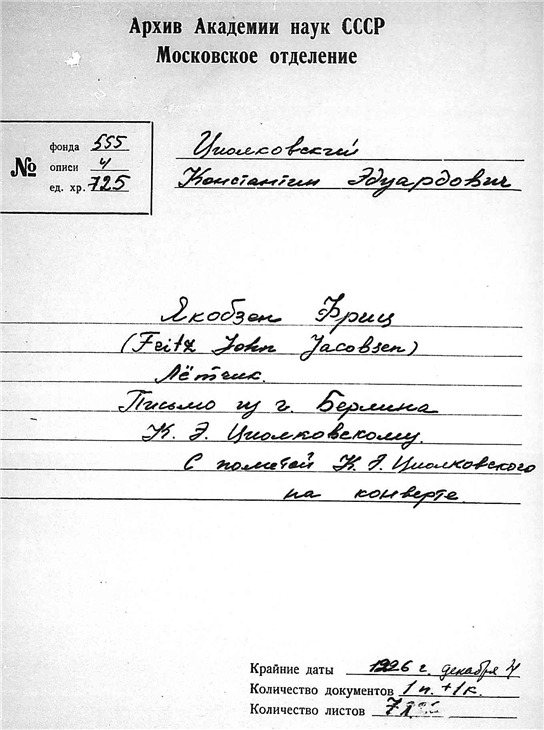 Архив Академии наук СССР
Московское отделение
№
фонда 555
описи 4
ед. хр. 725
Циолковский
Константин Эдуардович
Якобзен Фриц
(Fritz John Jacobsen)
Лётчик.
Письмо из г. Берлина
К. Э. Циолковскому.
С пометой К. Э. Циолковского
на конверте.
Крайние даты 1926 г. декабря 4
Количество документов 1 п. + 1 к.
Количество листов 7